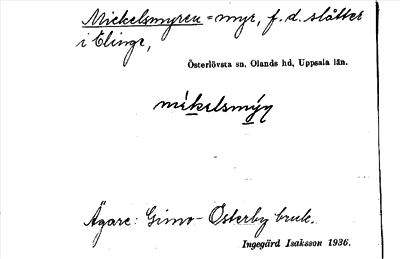 Mickelsmyren = myr, f. d. slåtter
i Elinge,
Österlövsta sn, Olands hd, Uppsala län.
Ägare: Gimo-Österby bruk.
Ingegärd Isaksson 1936.